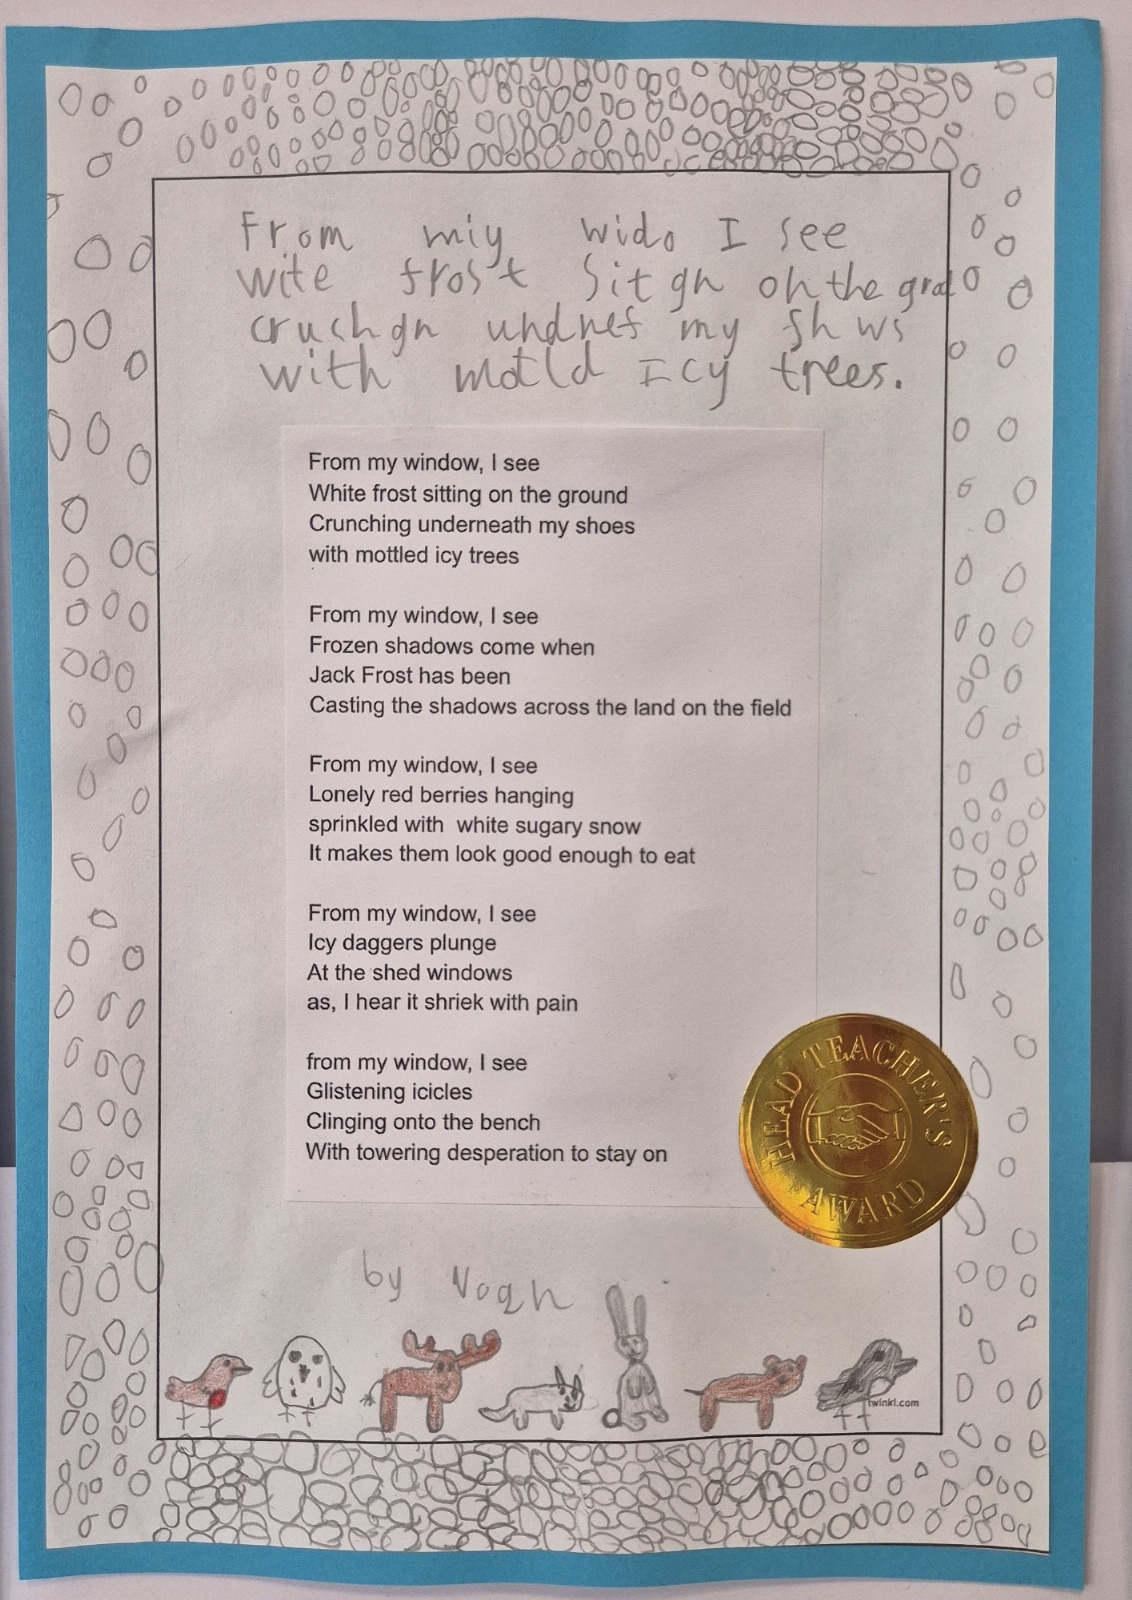 From miy wido I see
wite frost Sitgn on the grad
cruchgn undnef my shws
with motld Icy trees.
From my window, I see
White frost sitting on the ground
Crunching underneath my shoes
with mottled icy trees
From my window, I see
Frozen shadows come when
Jack Frost has been
Casting the shadows across the land on the field
From my window, I see
Lonely red berries hanging
sprinkled with white sugary snow
It makes them look good enough to eat
From my window, I see
Icy daggers plunge
At the shed windows
as, I hear it shriek with pain
from my window, I see
Glistening icicles
Clinging onto the bench
With towering desperation to stay on
HEAD TEACHER'S
AWARD
by Noah
twinkl.com